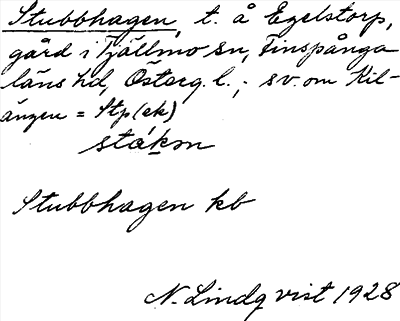 Stubbhagen, t. å Egelstorp,
gård i Tjällmo sn, Finspånga
läns hd, Österg. l.; sv. om Kil-
ängen = Stp (ek)
stákon
Stubbhagen kb
N. Lindqvist 1928